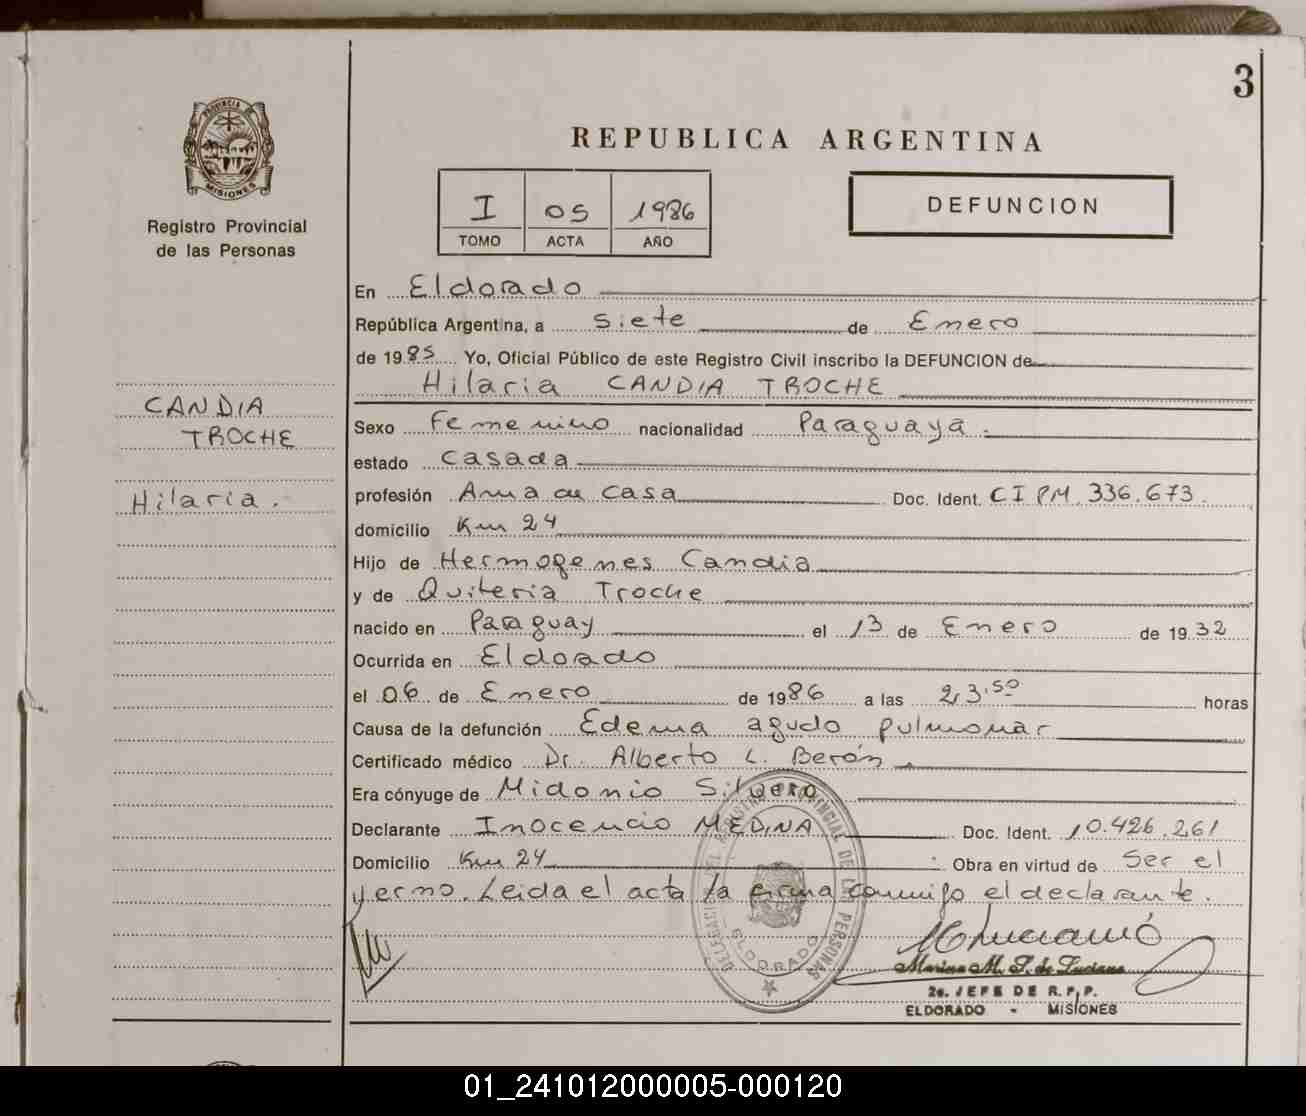 3
PROVINCIA DE
MISIONES
Registro Provincial
de las Personas
REPUBLICA ARGENTINA
I 05 1986
TOMO ACTA AÑO
DEFUNCION
En Eldorado
República Argentina, a siete de Enero
de 1985 Yo, Oficial Público de este Registro Civil inscribo la DEFUNCION de
Hilaria CANDIA TROCHE
CANDIA
TROCHE
Hilaria.
Sexo Femenino nacionalidad Paraguaya.
estado casada
profesión Ama de casa Doc. Ident. CI PM. 336.673.
domicilio Km 24
Hijo de Hermogenes Candia
y de Quiteria Troche
nacido en Paraguay el 13 de Enero de 1932
Ocurrida en Eldorado
el 06 de Enero de 1986 a las 23.50 horas
Causa de la defunción Edema agudo pulmonar
Certificado médico Dr. Alberto L. Berón
Era cónyuge de Midonio Silvero
Declarante Inocencio MEDINA Doc. Ident. 10.426.261
Domicilio Km 24 Obra en virtud de ser el
yerno. Leida el acta la firma conmigo el declarante.
DELEGACION DEL REGISTRO PROVINCIAL DE LAS PERSONAS
ELDORADO
Marina M. S. de Luciano
2o. JEFE DE R.P.P.
ELDORADO - MISIONES
01_241012000005-000120